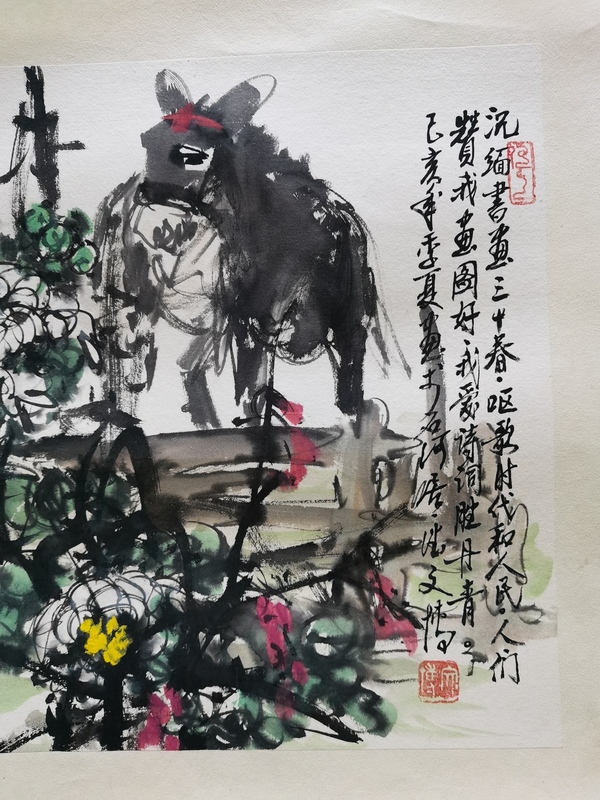 沉缅书画三十春·呕歌时代和人民人们
赞我画图好·我爱诗词胜丹青
己亥年季夏画于石河 文博